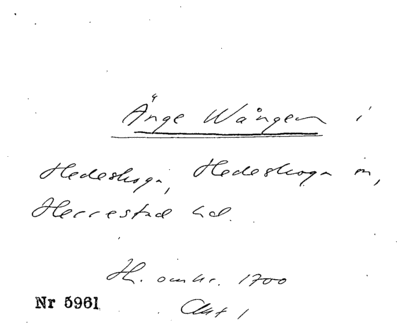 Änge Wången i
Hedeskoga, Hedeskoga sn,
Herrestad hd.
H. omkr. 1700
Nr 5961 Akt 1